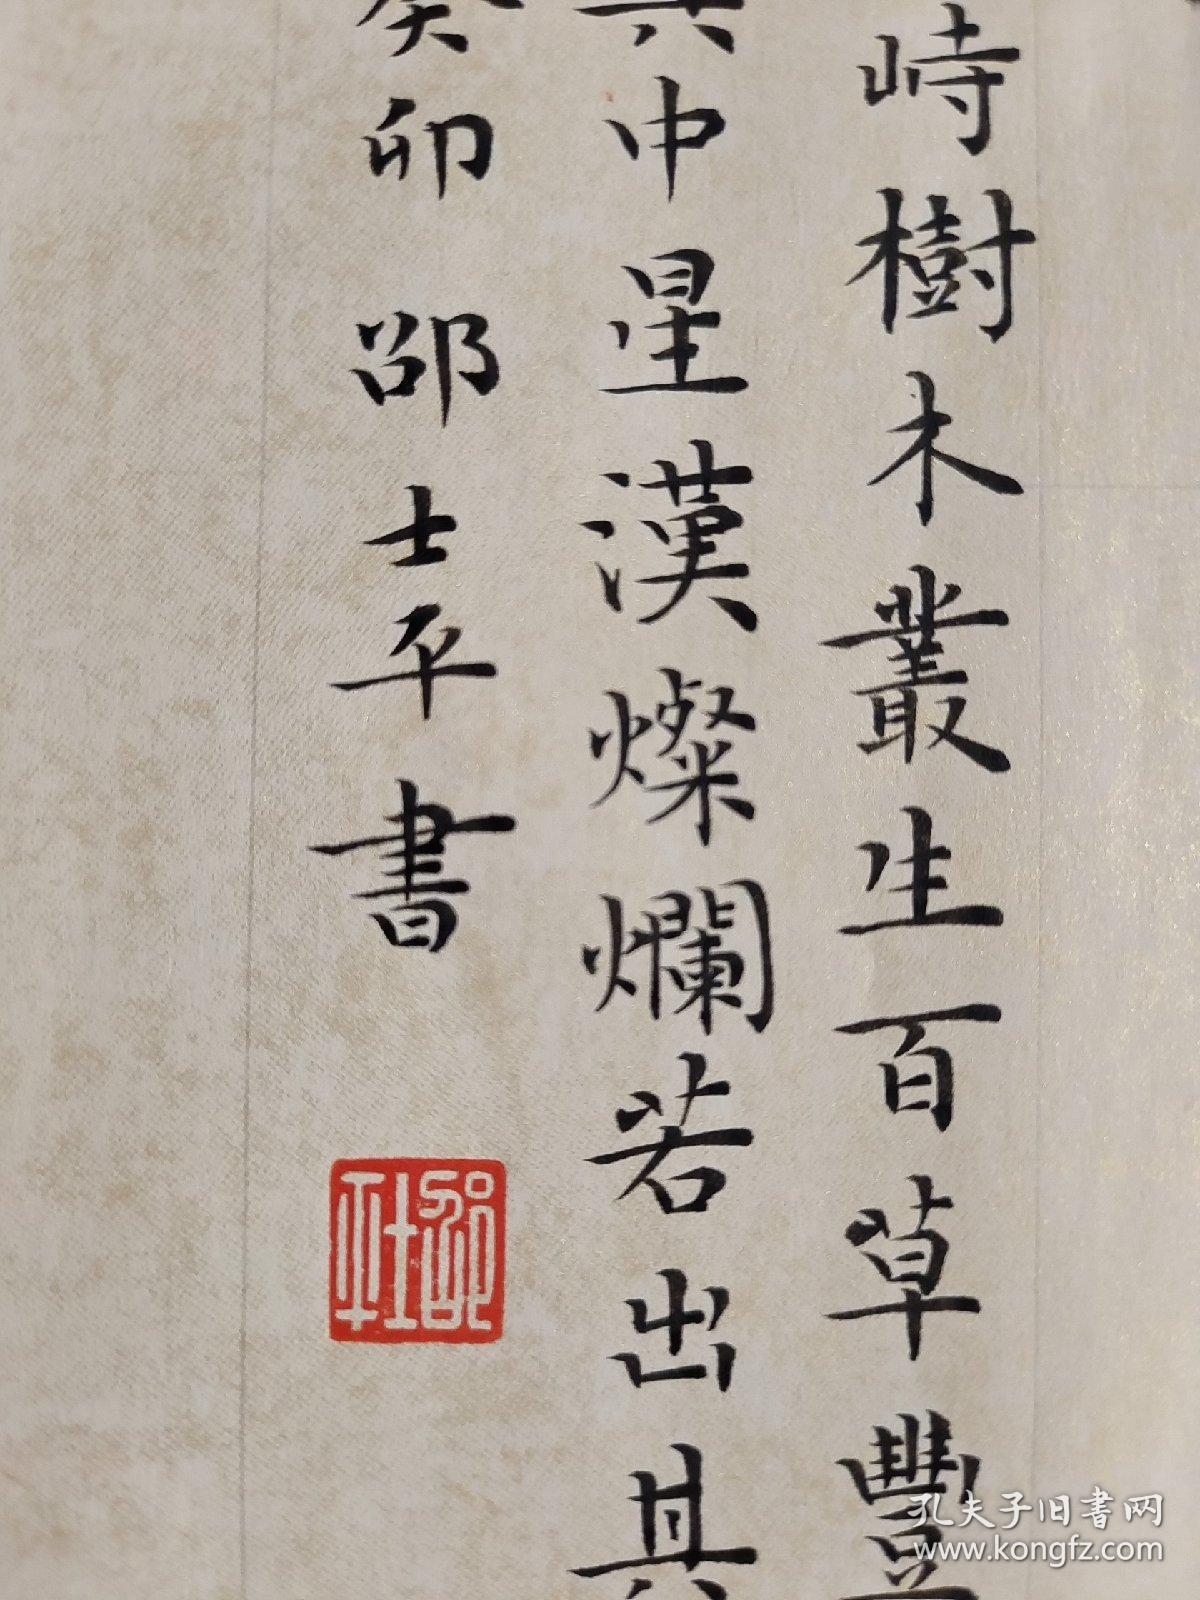 峙樹木叢生百草豐
其中星漢燦爛若出其
癸卯 邵士平書
邵士平
孔夫子旧书网
www.kongfz.com